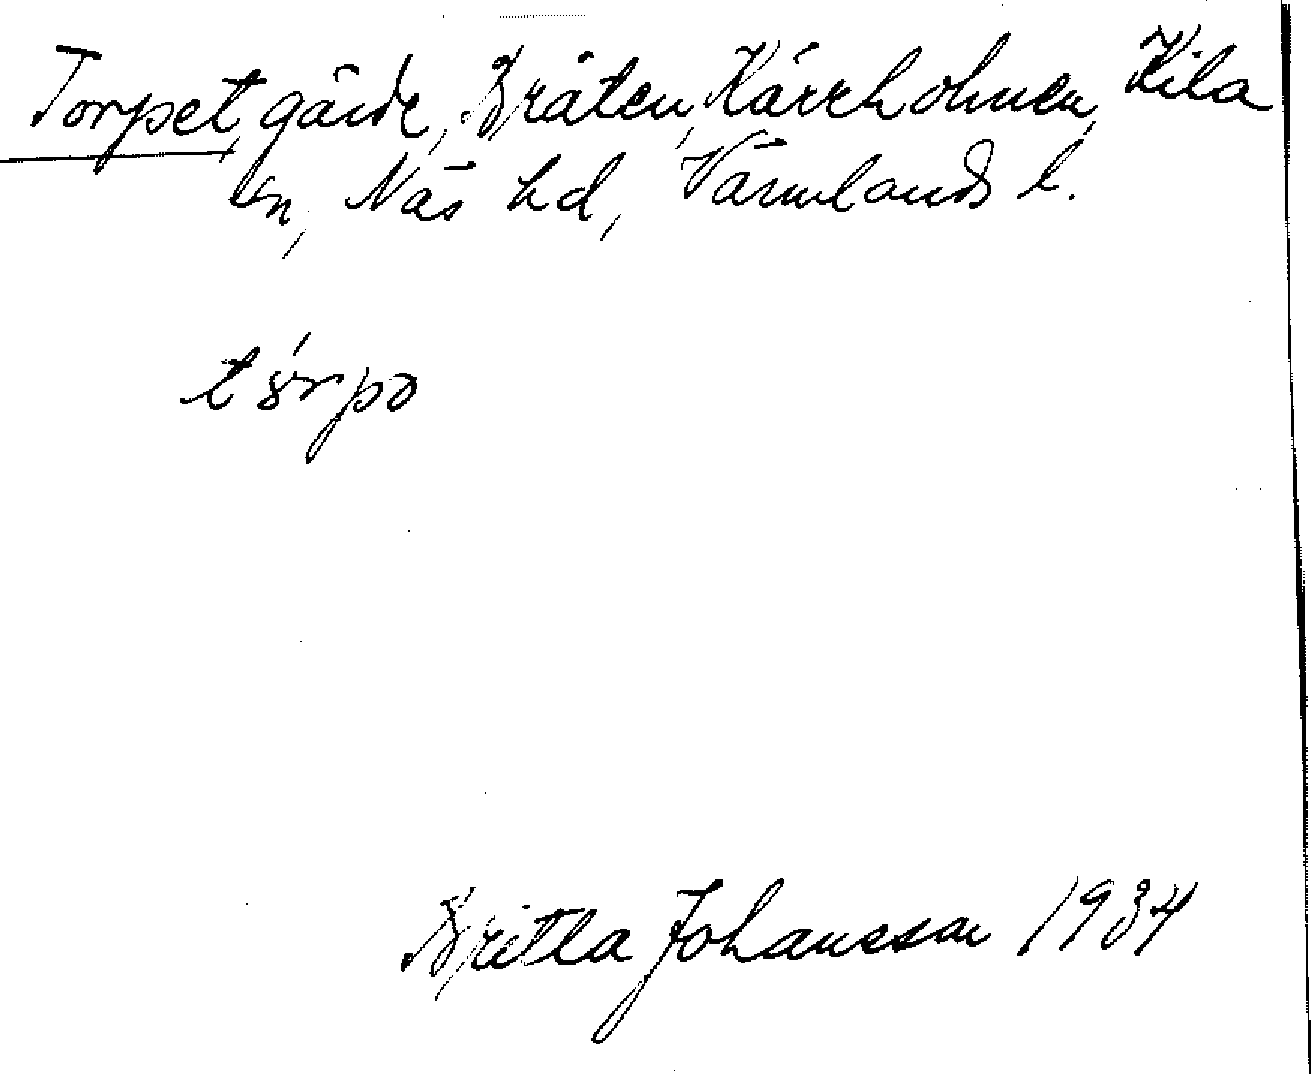 Torpet, gärde, Bråten, Kärrholmen, Kila
sn, Näs hd, Värmlands l.
Britta Johansson 1934